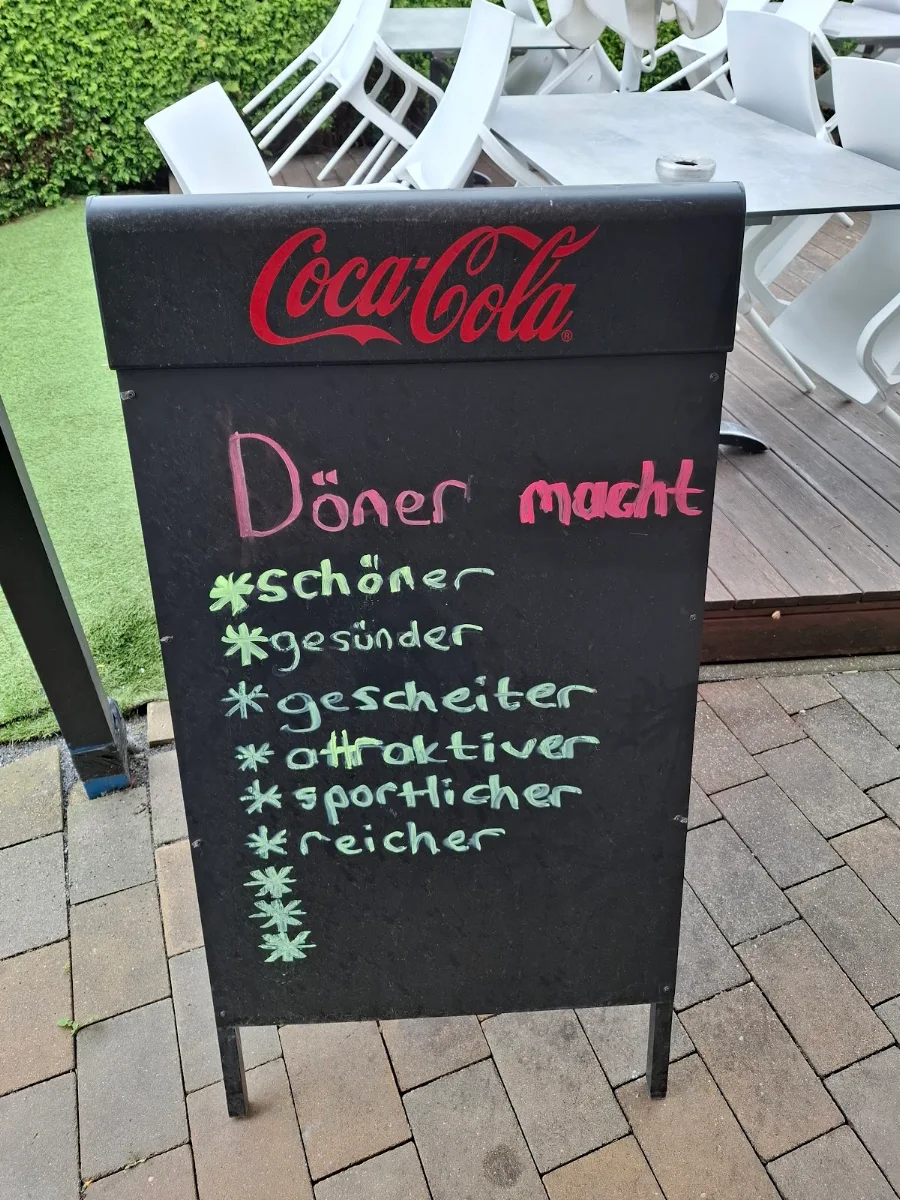 Coca-Cola®
Döner macht
*schöner
*gesünder
*gescheiter
*attraktiver
*sportlicher
*reicher
*
*
*